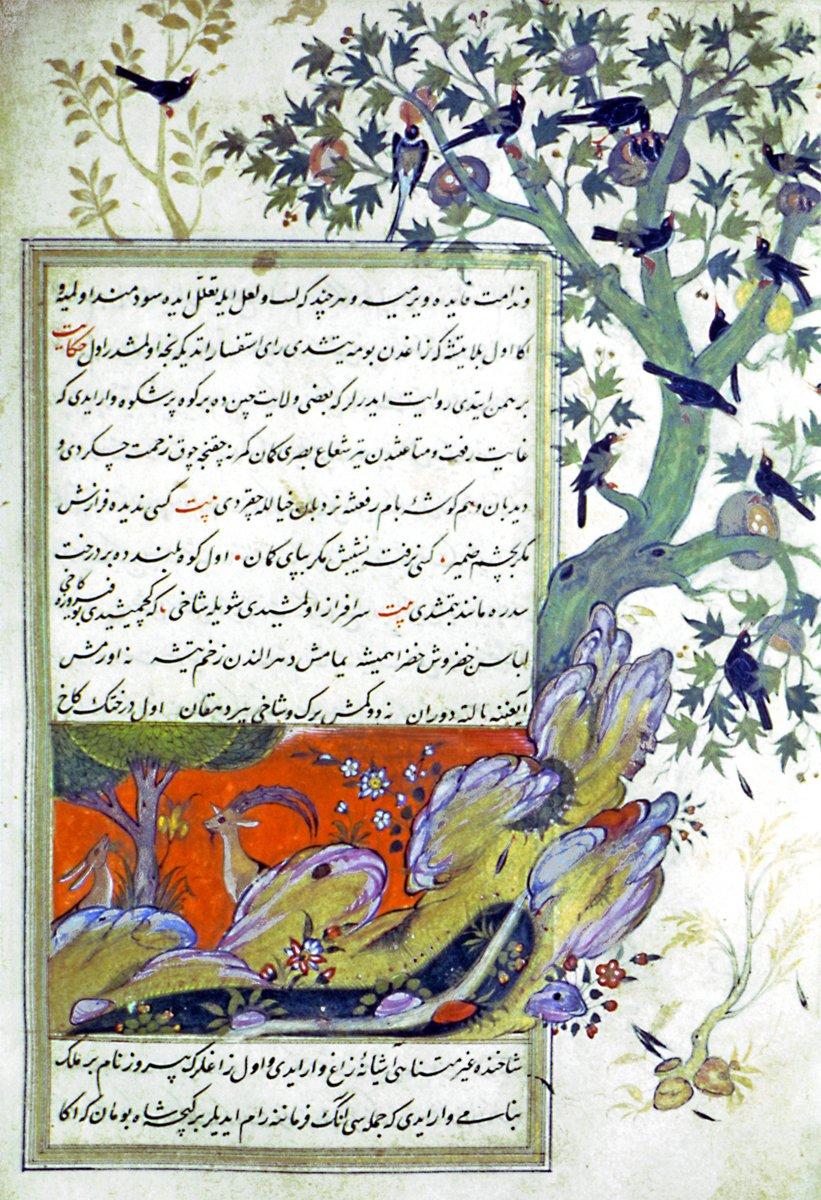 وندامت فایده ویرمیه وهر چند که لیت ولعل ایله تعلل ایده سودمند اولمیه و
اکا اول بلا یتشه که زاغدن بومه یتشدی رای استفسار ایتدیکه نیجه اولمشدر اول حکایت
برهمن ایتدی روایت ایدرلر که بعضی ولایت چین ده بر کوه پر شکوه وار ایدی که
غایت رفعت ومتانتدن تیر شعاع بصری کمان کمرنه چقنجه چوق زحمت چکردی و
دیدبان وهم کوشۀ بام رفعتنه نردبان خیالله چقردی بیت کسی ندیده فرازش
مکر بچشم ضمیر . کسی نرفته نشیبش مکر بپای کمان . اول کوه بلنده ده بر درخت
سدره مانند بتمشدی بیت سرافراز اولمشیدی شویله شاخی . که کچمشیدی بو فیروزه کاخی
لباس خضروش خضرا همیشه یمامش دهر الندن زخم تیشه نه اورمش
آیغنه بالته دوران نه دوکمش برک وشاخی پیر دهقان اول درختک کاخ
شاخنده غیر متناهی آشیانۀ زاغ وار ایدی واول زاغلرک پیروز نام بر ملک
بنامی وار ایدی که جمله سی انک فرماننه رام ایدیلر بر کیجه شاه بومان که اکا